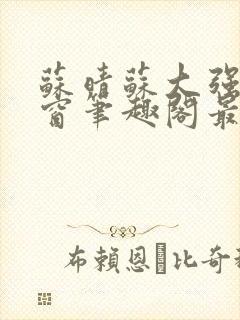 蘇晴蘇大强
窗筆趣閣最
布賴恩比奇